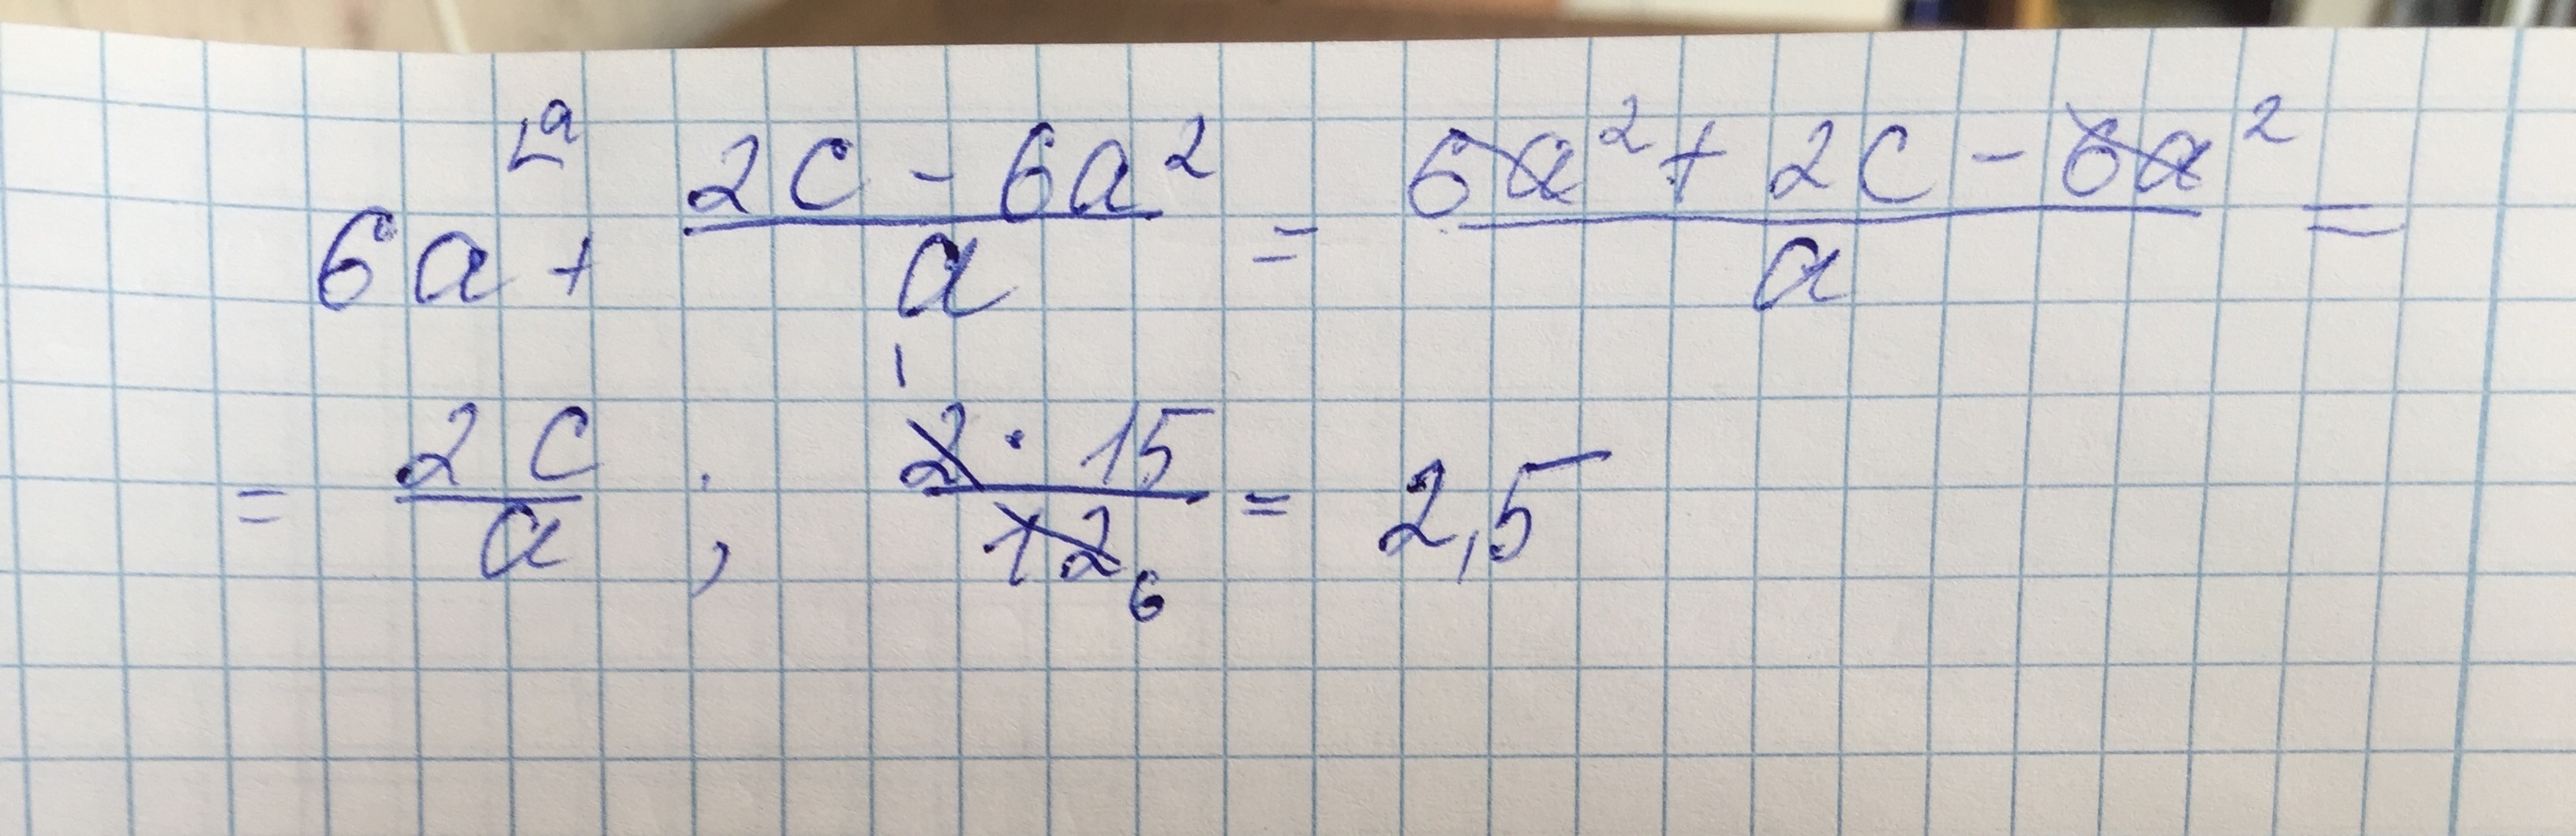 6a + (2c - 6a²)/a = (6a² + 2c - 6a²)/a =
= 2c/a ; (2 · 15)/12 = 2,5